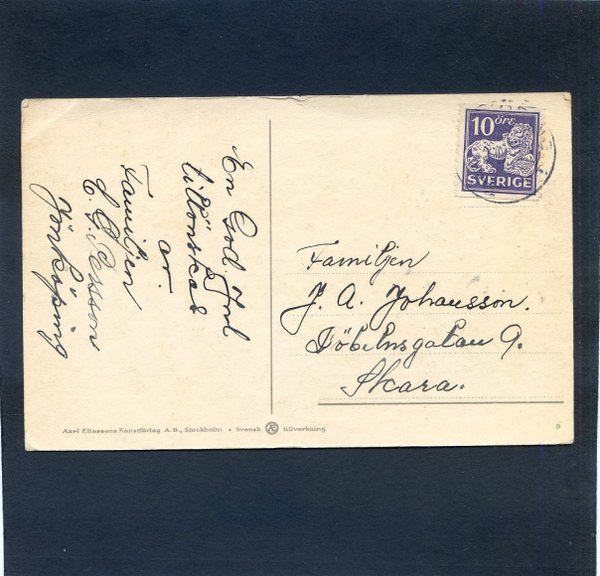 En God Jul
tillönskas
av.
Familjen
E. G. Persson
Jönköping
10 ÖRE
SVERIGE
Familjen
J. A. Johansson.
Döbelnsgatan 9.
Skara.
Axel Eliassons Konstförlag A.B., Stockholm • Svensk Æ tillverkning